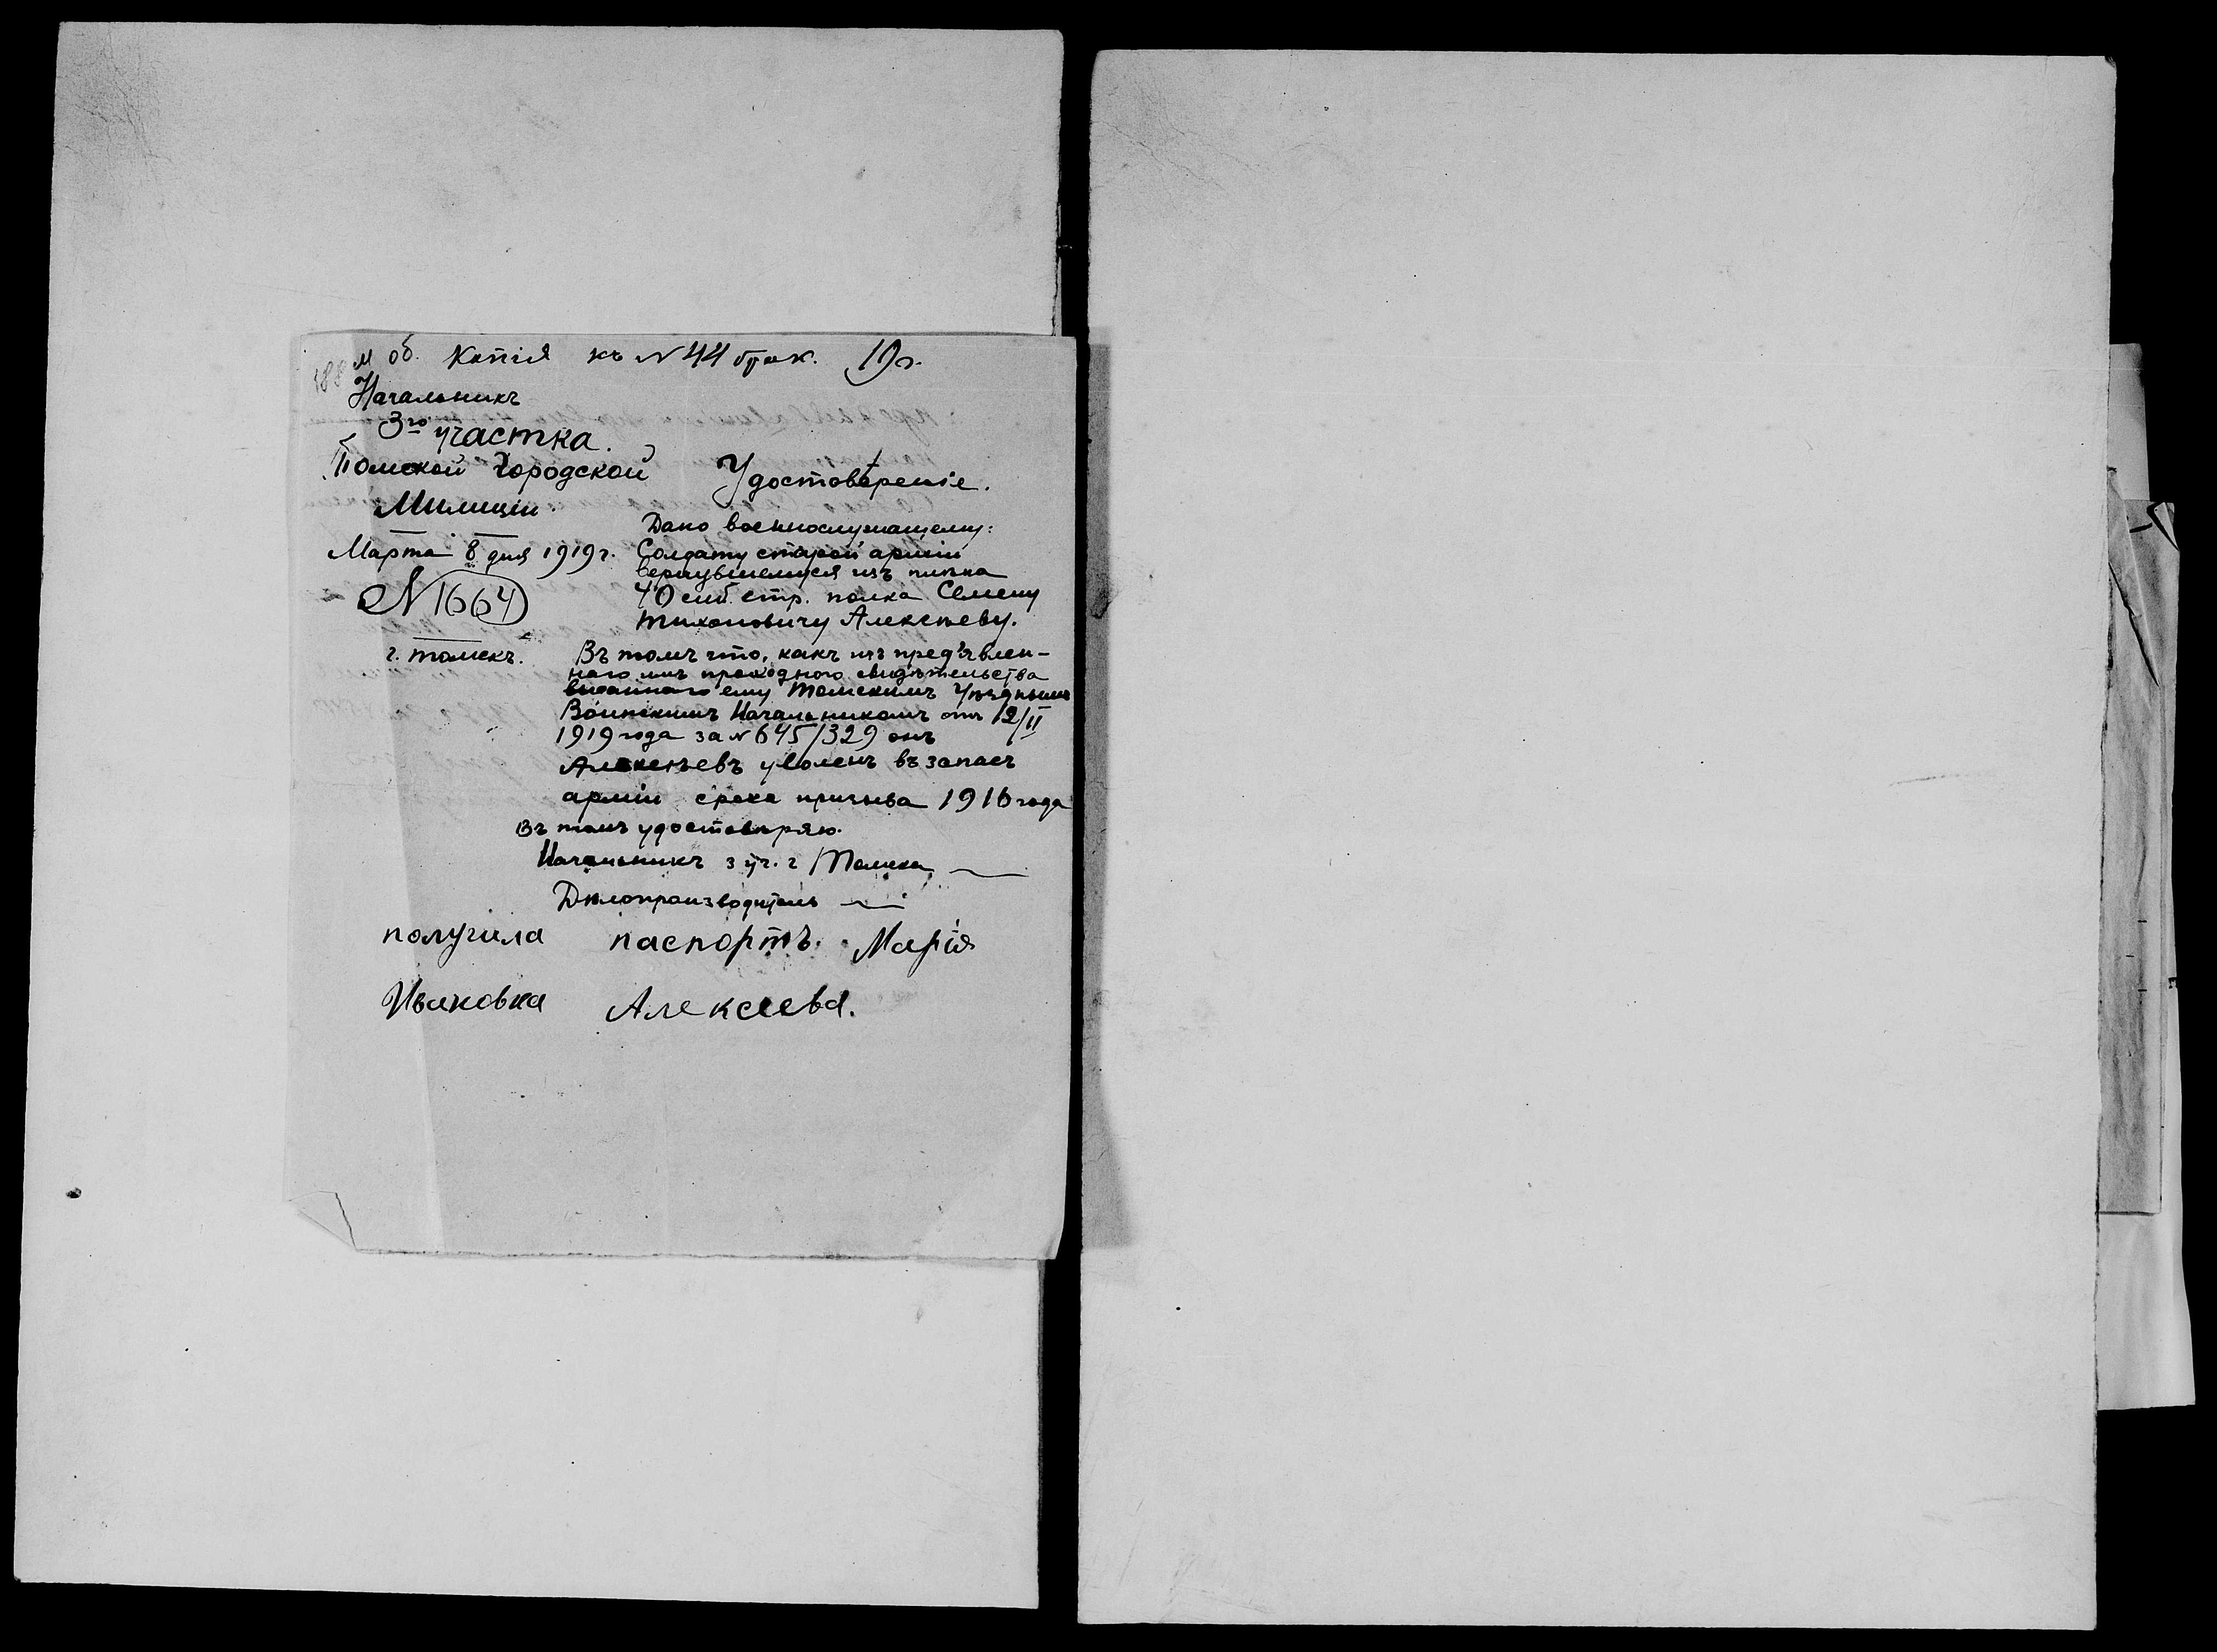 М об. Копія къ № 44 брак. 19 г.
Начальникъ
3го участка.
Томской Городской
Милиціи.
Марта 8 дня 1919 г.
№ 1664
г. Томскъ.
Удостовѣреніе.
Дано военнослужащему:
Солдату старой арміи
вернувшемуся изъ плѣна
40 сиб. стр. полка Семену
Тихоновичу Алексѣеву.
Въ томъ что, какъ изъ предъявлен-
наго имъ проходного свидѣтельства
выданнаго ему Томскимъ Уѣзднымъ
Воинскимъ Начальникомъ отъ 12/II
1919 года за № 645/329 онъ
Алексѣевъ уволенъ въ запасъ
арміи срока призыва 1916 года
Въ томъ удостовѣряю.
Начальникъ 3 уч. г Томска
Дѣлопроизводитель
получила паспортъ. Марія
Ивановна Алексеева.